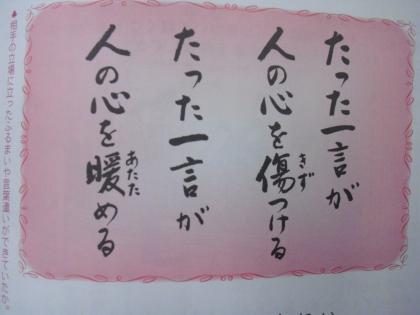 たった一言が
人の心を傷つける
たった一言が
人の心を暖める
▲相手の立場に立ったふるまいや言葉遣いができていたか。